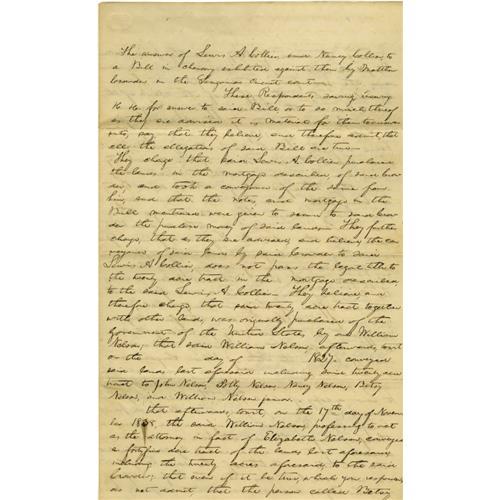 The answer of Lewis A Collier and Nancy Collier, to
a Bill in chancery exhibited against them by Matthew
Crowder in the Sangamon Circuit court.
These Respondents, saving &c
&c &c for answer to said Bill or to so much thereof
as they are advised it is material for them to answer
unto, say that they believe, and therefore admit that
all the allegations of said Bill are true—
They charge that said Lewis A Collier purchased
the lands in the mortgage described of said Crow-
der, and took a conveyance of the same from
him, and that the notes, and mortgage in the
Bill mentioned were given to secure to said Crow-
der the purchase money of said lands— They further
charge, that as they are advised, and believe the con-
veyance of said lands by said Crowder to said
Lewis A. Collier, does not pass the legal title to
the twenty acre tract in the mortgage described
to the said Lewis A. Collier— They believe and
therefore charge, that said twenty acre tract together
with other land, was originally purchased of the
Government of the United States, by one William
Nelson; that said William Nelson, afterwards, towit
on the day of 1827. conveyed
said lands last aforesaid including said twenty acre
tract to John Nelson, Polly Nelson, Nancy Nelson, Betsy
Nelson, and William Nelson junior.
That afterwards, towit, on the 17th day of Novem-
ber 1835, the said William Nelson, professing to act
as the attorney in fact of Elizabeth Nelson, conveyed
a fortyfive acre tract of the lands last aforesaid
including the twenty acres aforesaid, to the said
Crowder; that even if it be true, which your respondents
do not admit, that the person called Betsy